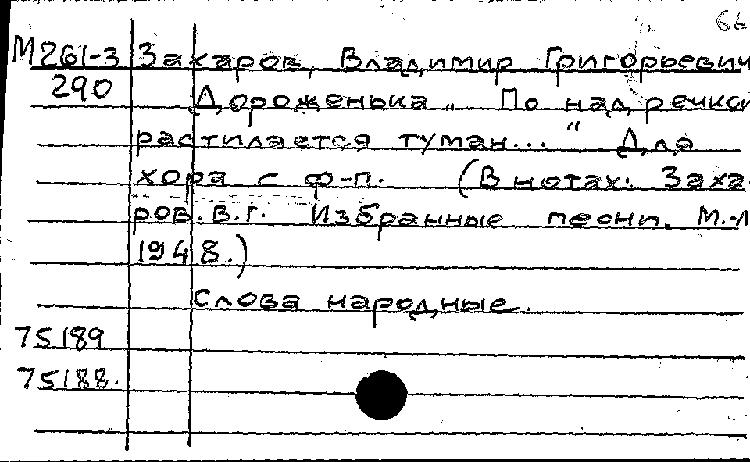 66
М261-3 Захаров, Владимир Григорьевич
290 Дороженька „ По над речкой
растилается туман... " Для
хора с ф-п. (В нотах: Заха-
ров. В.Г. Избранные песни. М.-Л
1948.)
Слова народные.
75189
75188.